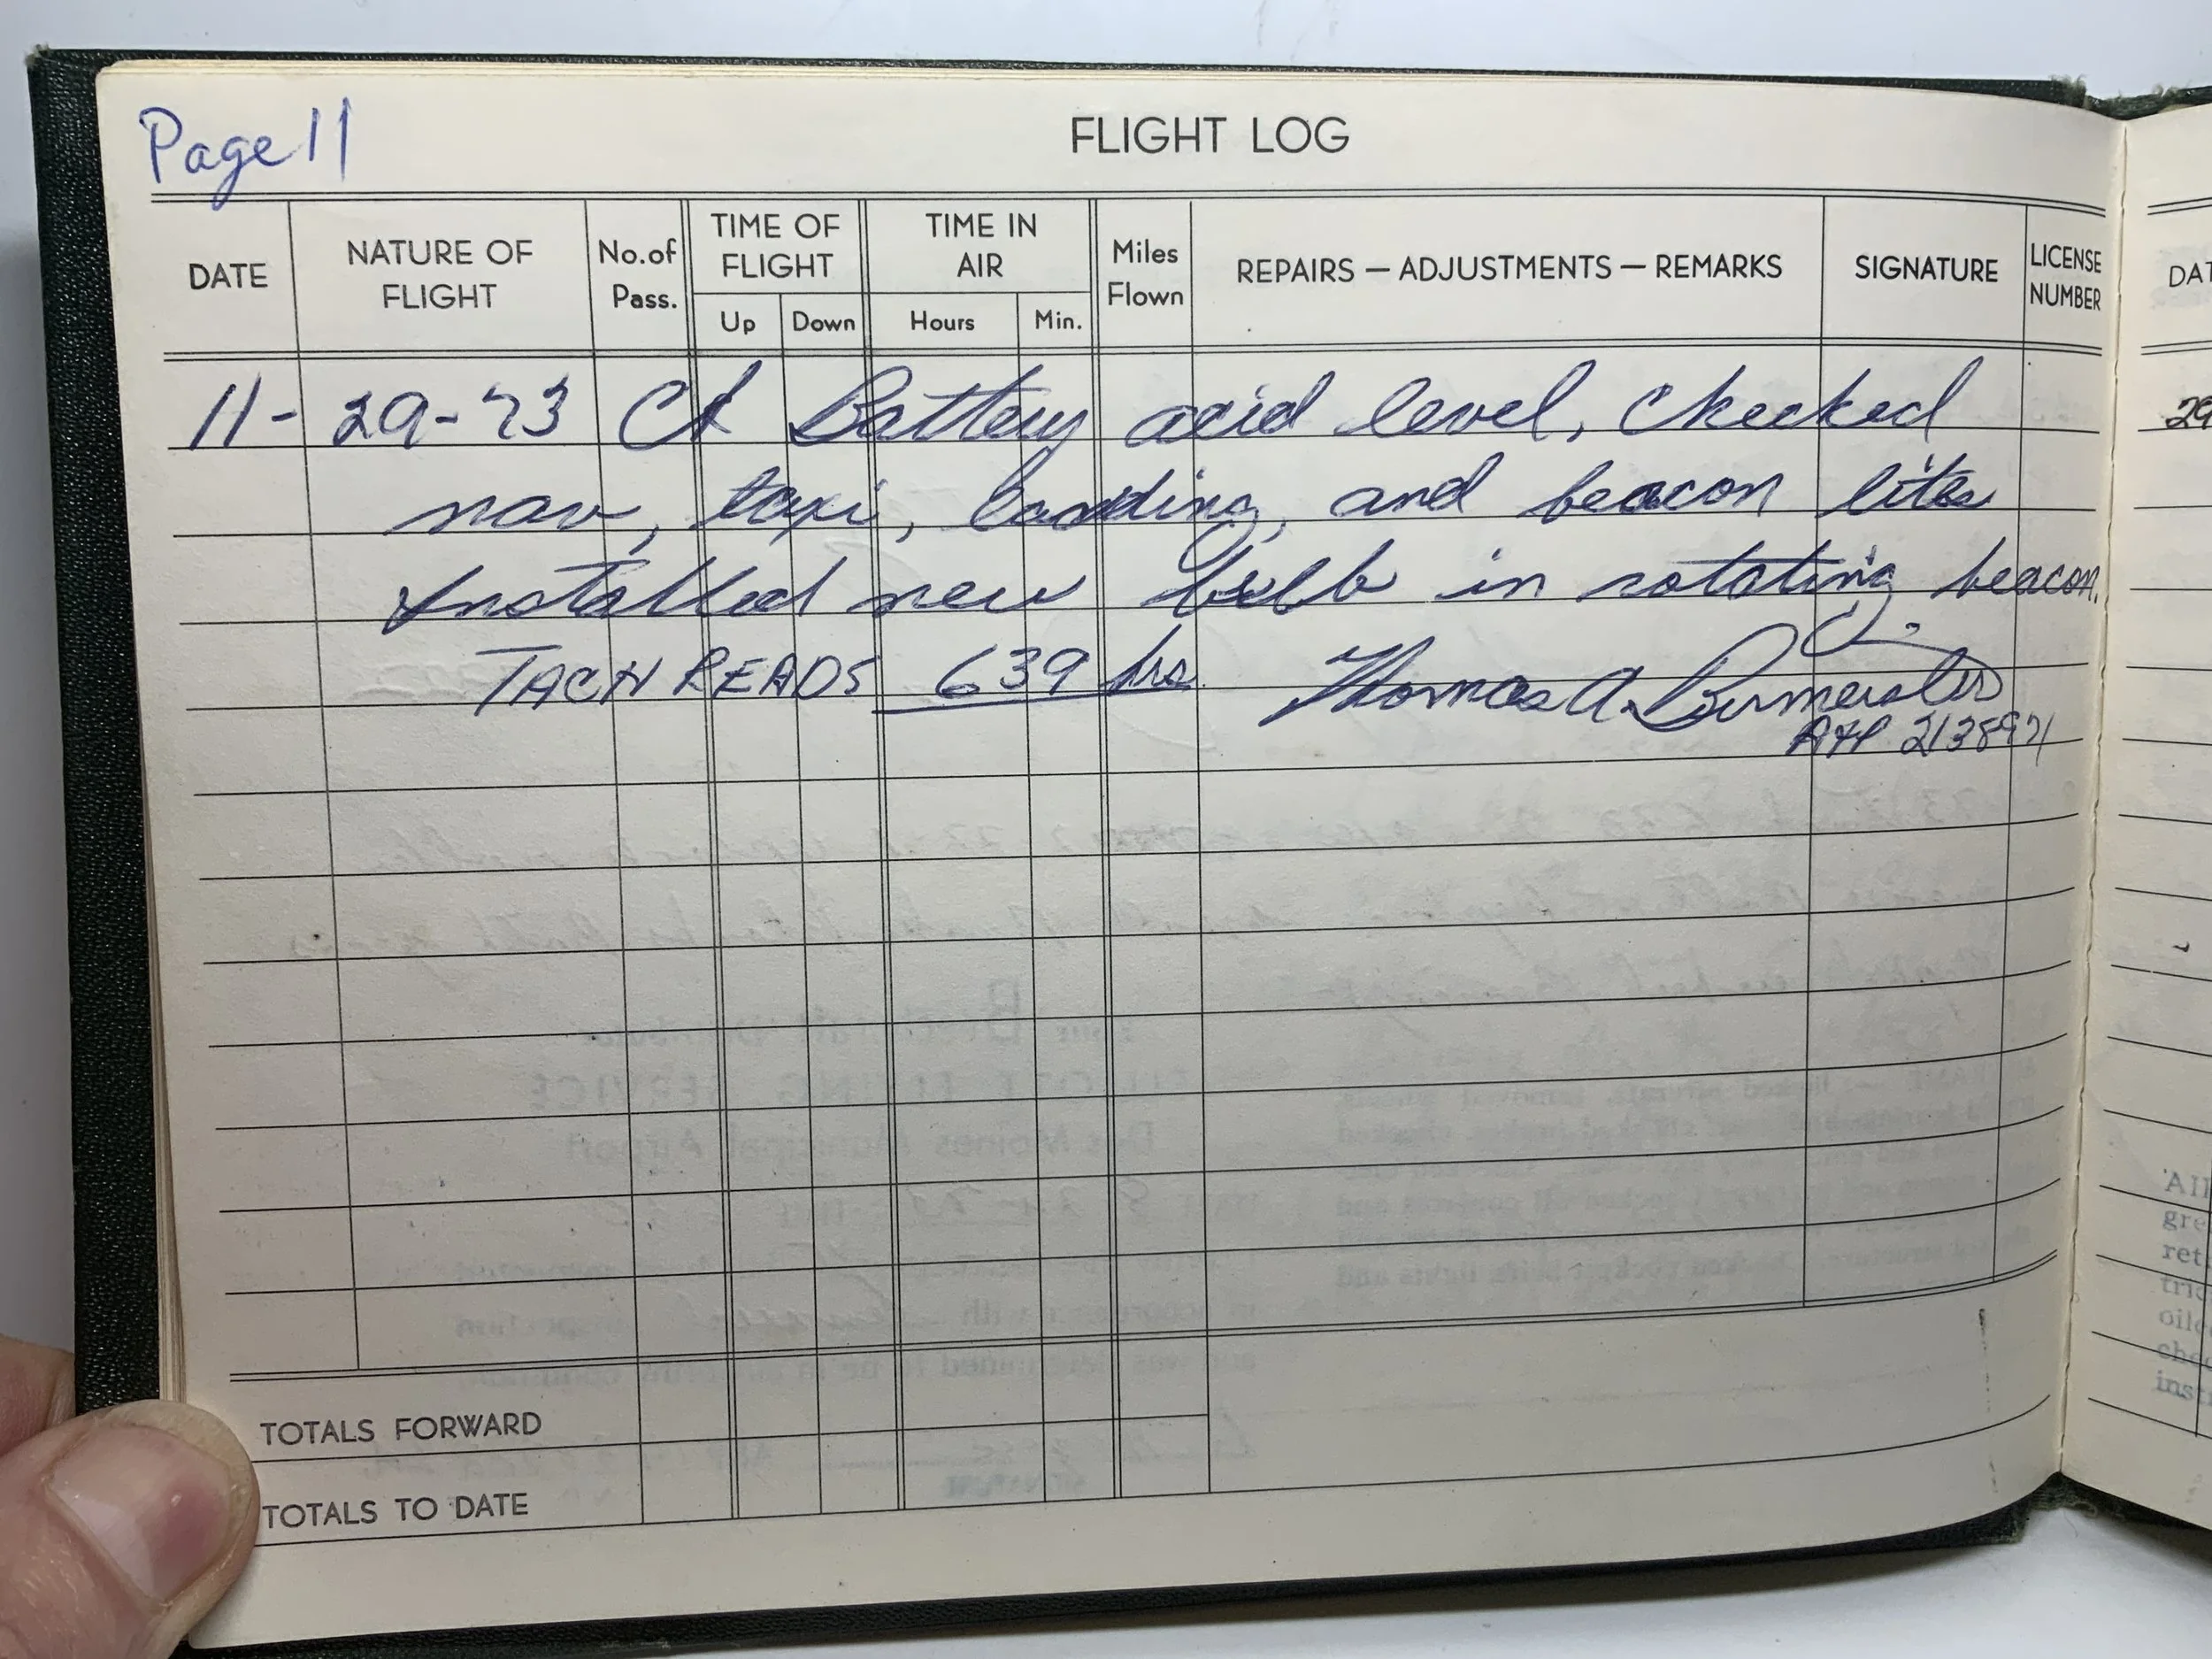 Page 11
FLIGHT LOG
DATE
NATURE OF FLIGHT
No. of Pass.
TIME OF FLIGHT
Up
Down
TIME IN AIR
Hours
Min.
Miles Flown
REPAIRS — ADJUSTMENTS — REMARKS
SIGNATURE
LICENSE NUMBER
11-29-73 Ck Battery acid level, checked
nav, taxi, landing, and beacon lites
Installed new bulb in rotating beacon.
TACH READS 639 hrs. Thomas A. Burmeister
A&P 2138971
TOTALS FORWARD
TOTALS TO DATE
DAT
29
All
gre
ret
tric
oile
chec
inst